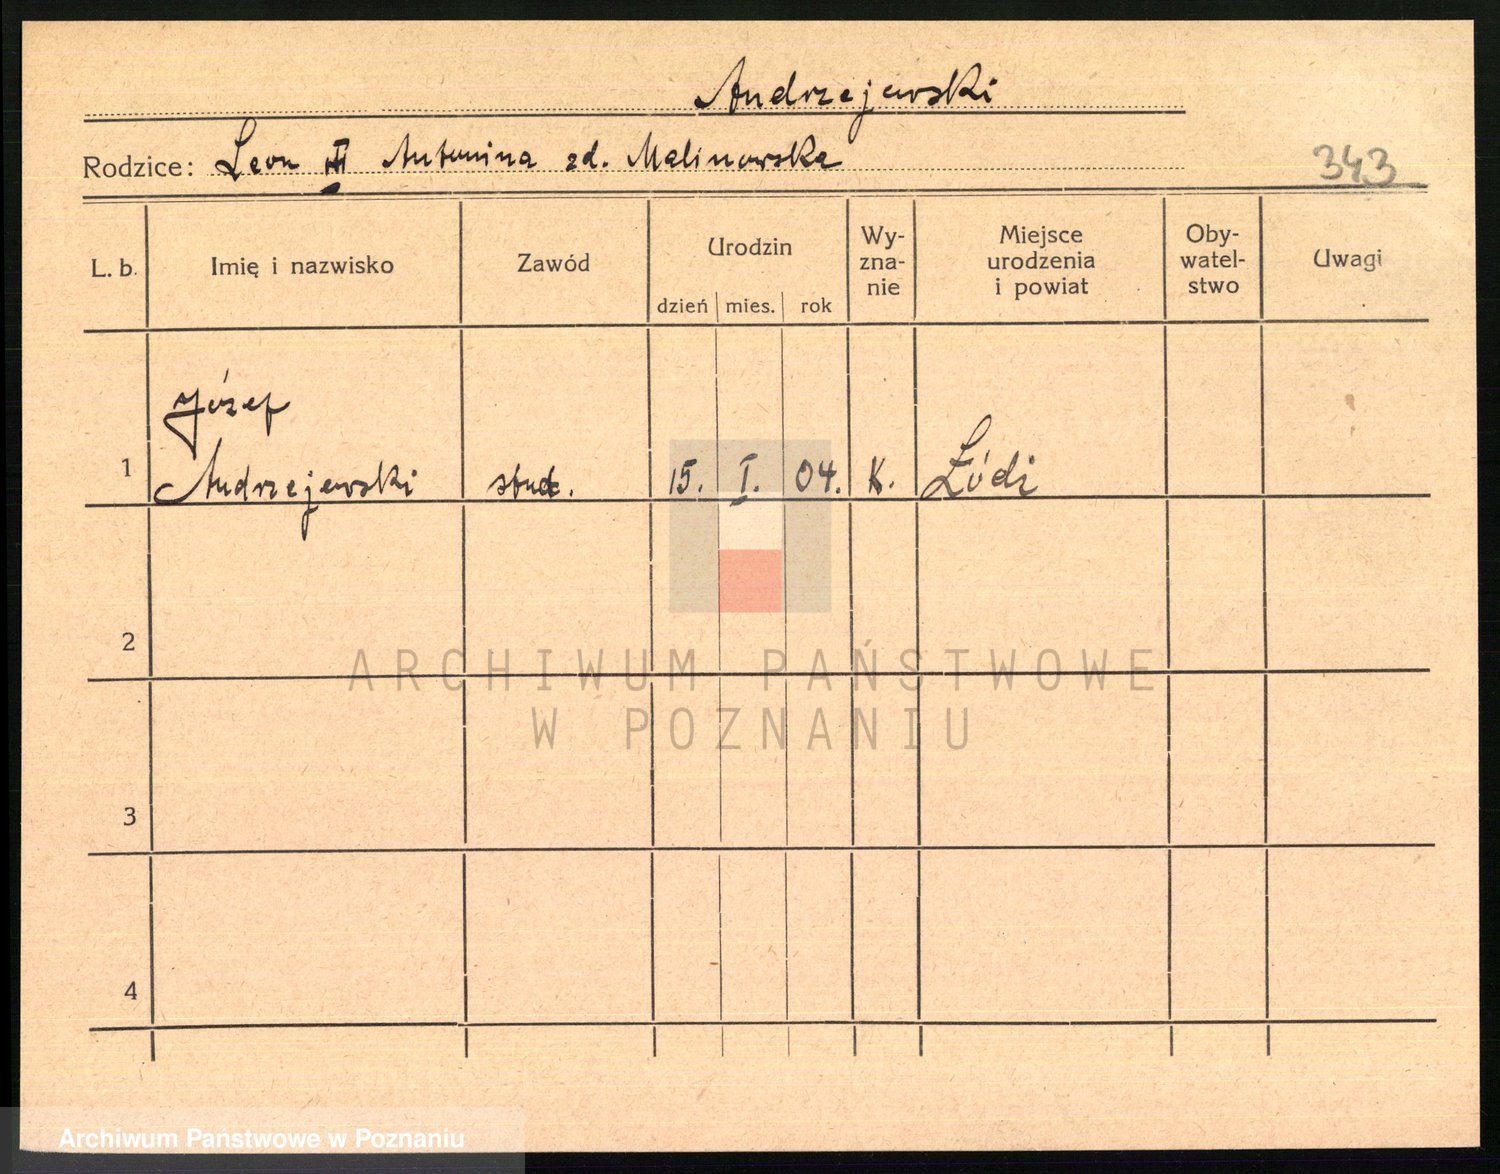 Andrzejewski
Rodzice: Leon III Antonina zd. Malinowska
343
L. b. Imię i nazwisko Zawód Urodzin dzień mies. rok Wy-zna-nie Miejsce urodzenia i powiat Oby-watel-stwo Uwagi
Józef
1 Andrzejewski stud. 15. I. 04. K. Łódź
2
ARCHIWUM PAŃSTWOWE
W POZNANIU
3
4
Archiwum Państwowe w Poznaniu